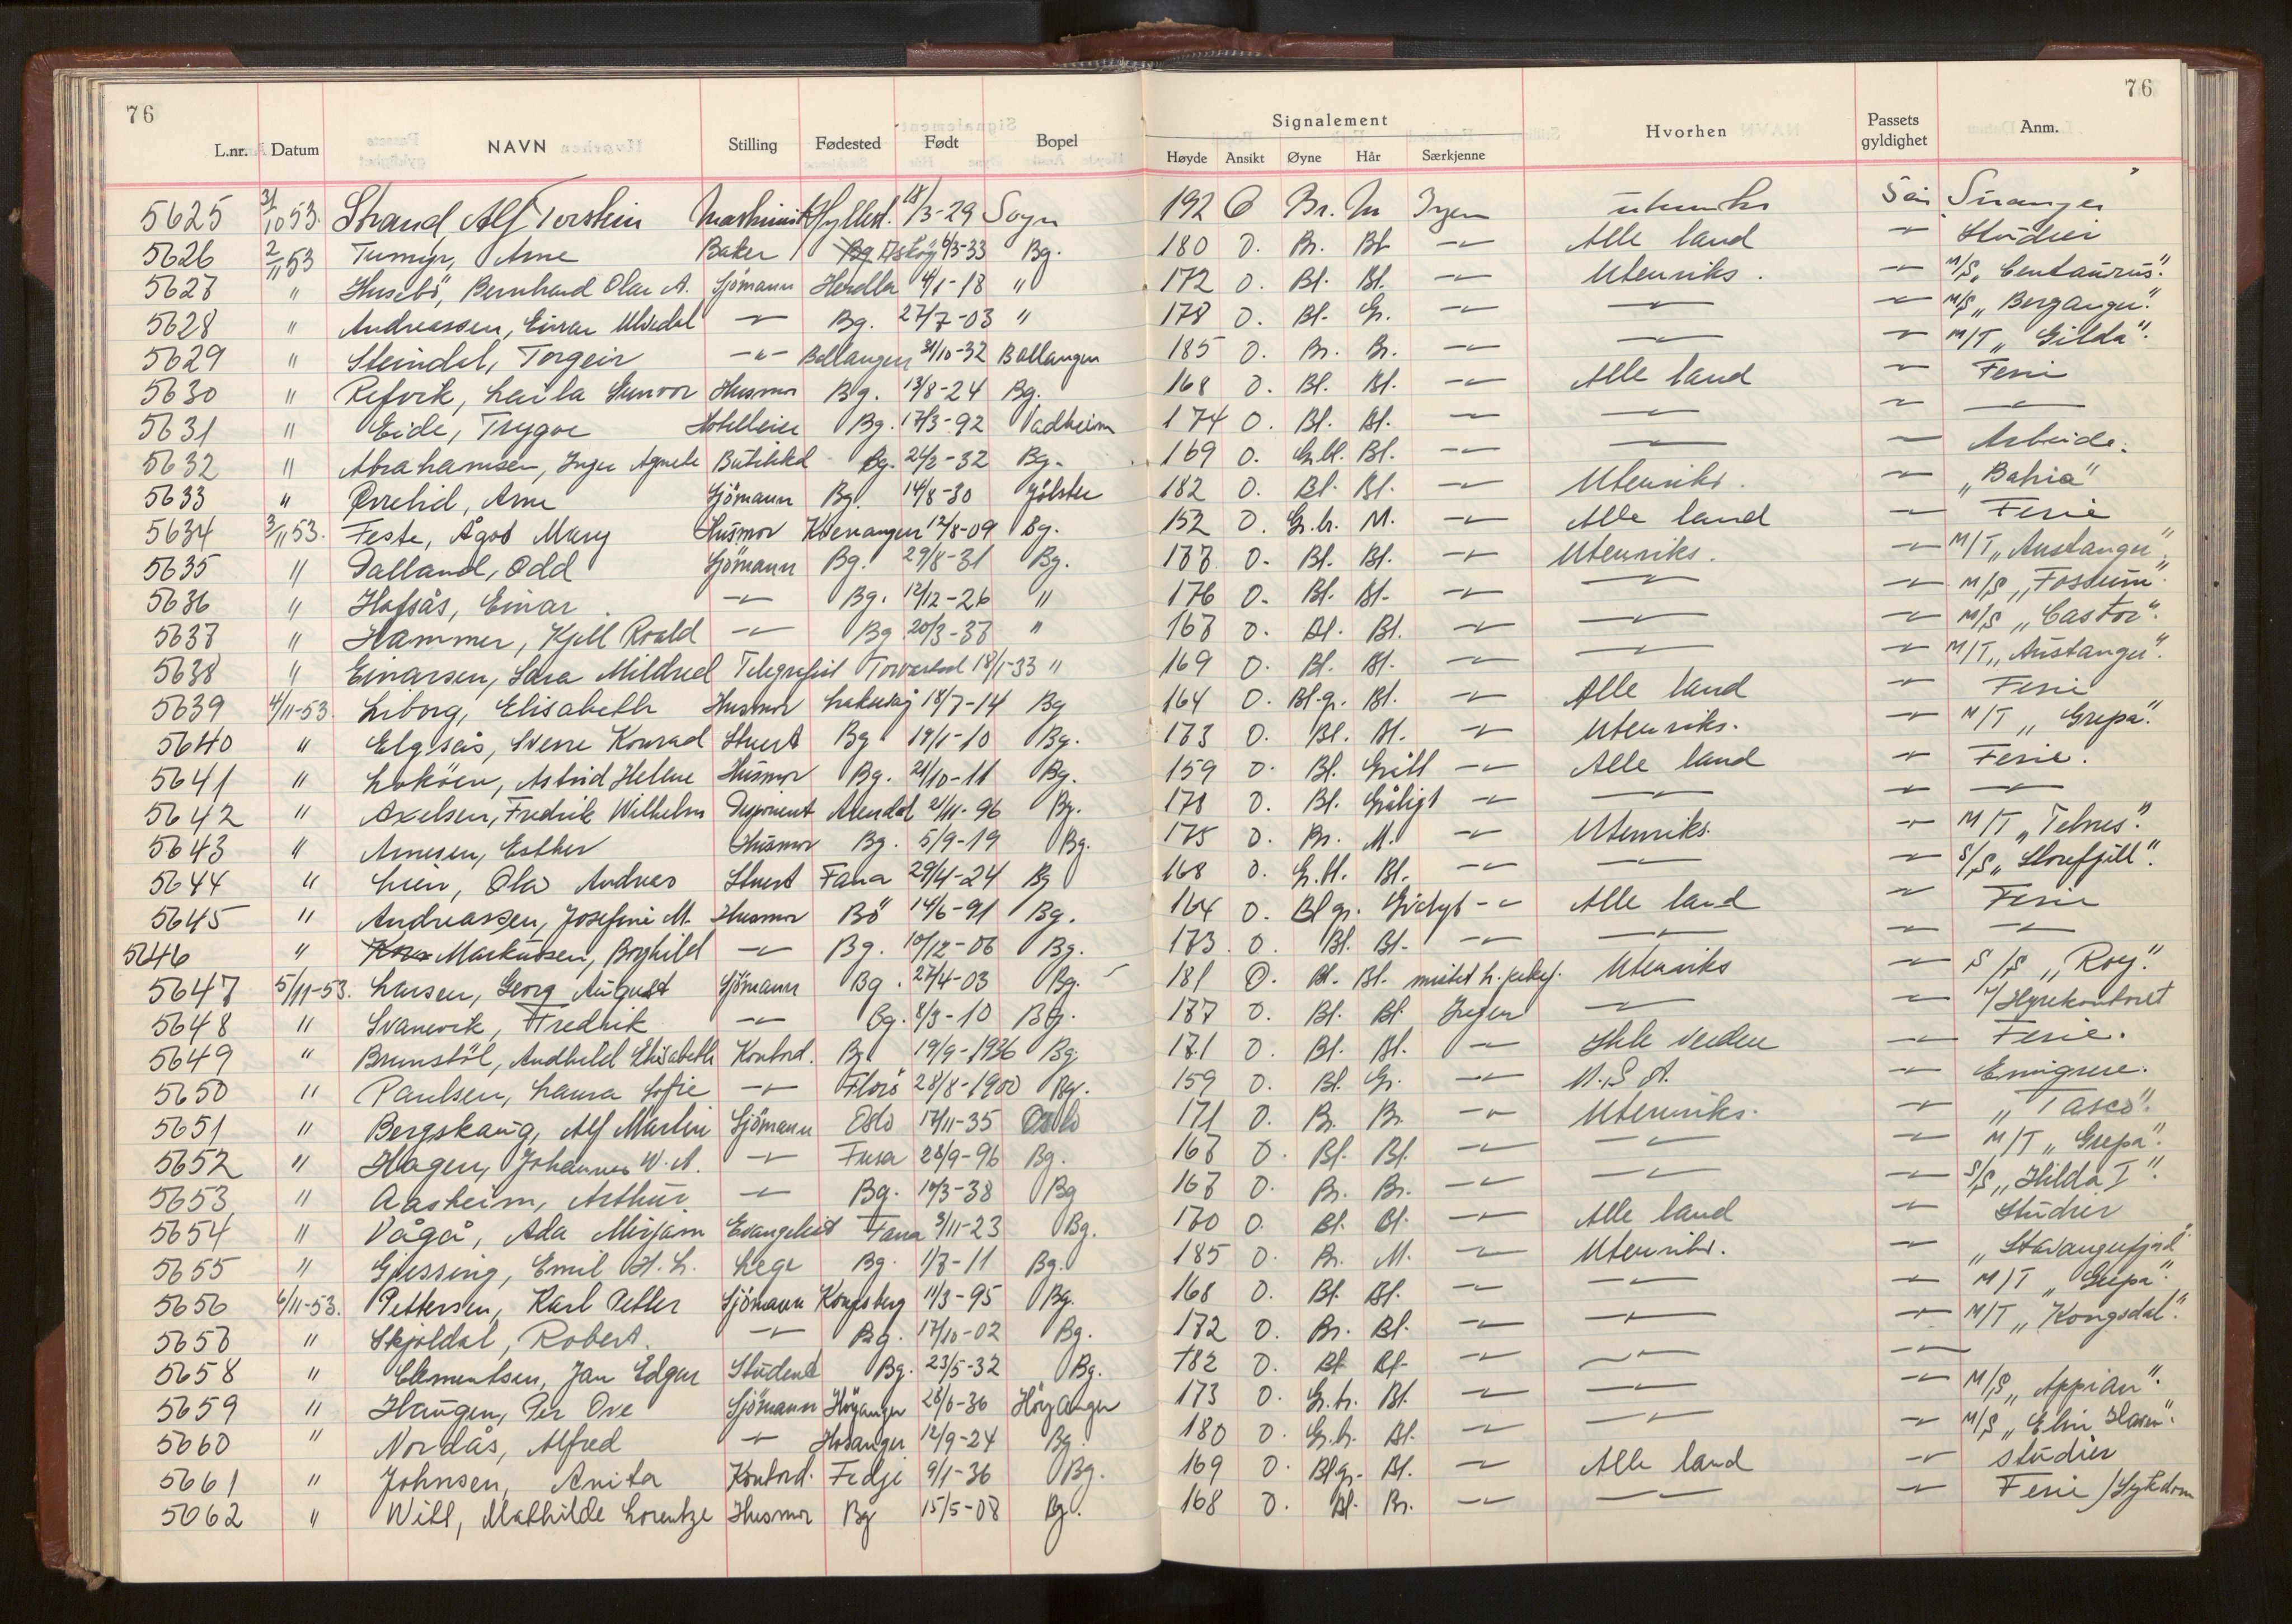 76
76
L.nr. Datum NAVN Stilling Fødested Født Bopel Signalement Hvorhen Passets gyldighet Anm.
Høyde Ansikt Øyne Hår Særkjenne
5625 31/10 53. Strand, Alf Torstein Maskinist Hyllest. 18/3-29 Sogn 192 O Br. M Ingen utenriks 5 år Siranger
5626 2/11 53 Tumyr, Arne Baker Bg Askøy 6/3-33 Bg. 180 O. Br. Bl. -"- Alle land -"- Studier
5627 " Husebö, Bernhard Olav A. Sjömann Herdla 4/1-18 " 172 O. Bl. Bl. -"- Utenriks. -"- M/S "Centaurus".
5628 " Andreassen, Einar Ulvedal -"- Bg. 27/7-03 " 178 O. Bl. Gr. -"- -"- -"- M/S "Beranger".
5629 " Steindal, Torgeir -"- Ballangen 31/10-32 Ballangen 185 O. Br. Br. -"- -"- -"- M/T "Gilda".
5630 " Refvik, Laila Gunvor Husmor Bg. 13/8-24 Bg. 168 O. Bl. Bl. -"- Alle land -"- Ferie
5631 " Eide, Trygve Hotelleier Bg. 17/3-92 Vadheim 174 O. Bl. Bl. -"- -"- -"- -"-
5632 " Abrahamsen, Inger Agnete Butikkd Bg. 24/2-32 Bg. 169 O. Gr.bl. Bl. -"- -"- -"- Arbeide.
5633 " Ørrelid, Arne Sjömann Bg. 14/8-30 Jölster 182 O. Bl. Bl. -"- Utenriks. -"- "Bahia"
5634 3/11 53. Feste, Ågot Mary Husmor Kvenangen 12/8-09 Bg. 152 O. Gr.br. M. -"- Alle land -"- Ferie
5635 " Dalland, Odd Sjömann Bg. 29/8-31 Bg. 177 O. Bl. Bl. -"- Utenriks. -"- M/T "Austanger".
5636 " Hafsås, Einar -"- Bg. 12/12-26 " 176 O. Bl. Bl. -"- -"- -"- M/S "Fossum".
5637 " Hammer, Kjell Roald -"- Bg 20/3-37 " 167 O. Bl. Bl. -"- -"- -"- M/S "Castor".
5638 " Einarsen, Sara Mildred Telegrafist Torvastad 18/1-33 " 169 O. Bl. Bl. -"- -"- -"- M/T "Austanger".
5639 4/11-53 Liborg, Elisabeth Husmor 18/7-14 Bg 164 O. Bl.gr. Bl. -"- Alle land -"- Ferie
5640 " Elgsås, Sverre Konrad Stuert Bg 19/1-10 Bg. 173 O. Bl. Bl. -"- Utenriks. -"- M/T "Grepa".
5641 " Loköen, Astrid Helene Husmor Bg. 21/10-11 Bg. 159 O. Bl. Grått -"- Alle land -"- Ferie.
5642 " Axelsen, Fredrik Wilhelm Disponent Arendal 21/11-96 Bg. 178 O. Bl. Gråligt -"- -"- -"- -"-
5643 " Arnesen, Esther Husmor Bg. 5/9-19 Bg. 175 O. Br. M. -"- Utenriks. -"- M/T "Telnes".
5644 " Lien, Olav Andreas Stuert Fana 29/4-24 Bg 168 O. Gr.bl. Bl. -"- -"- -"- S/S "Storefjell".
5645 " Andreassen, Josefine M. Husmor Bö 14/6-91 Bg. 164 O. Bl gr. -"- Alle land -"- Ferie
5646 " Markussen, Borghild -"- Bg. 10/12-06 Bg. 173. O. Bl. Bl. -"- -"- -"- -"-
5647 5/11-53. Larsen, Georg August Sjömann Bg. 27/4-03 Bg. 181 O. Bl. Bl. mistet h. pekef. Utenriks -"- S/S "Roy".
5648 " Svanevik, Fredrik -"- Bg. 8/3-10 Bg. 177 O. Bl. Bl. Ingen -"- -"- v/Hyrekontoret
5649 " Brunstöl, Audhild Elisabeth Kontord. Bg 19/9-1936 Bg. 171 O. Bl. Bl. -"- Hele verden -"- Ferie.
5650 " Paulsen, Laura Sofie -"- Florö 28/8-1900 Bg. 159 O. Bl. Gr. -"- U.S.A. -"- Emigrere.
5651 " Bergskaug, Alf Martin Sjömann Oslo 17/11-35 Oslo 171 O. Br. Br. -"- Utenriks. -"- "Tasco".
5652 " Hagen, Johannes W. A. -"- Fusa 28/9-96 Bg. 167 O. Bl. Bl. -"- -"- -"- M/T "Grepa".
5653 " Aasheim, Arthur. -"- Bg. 10/3-38 Bg 167 O. Br. Br. -"- -"- -"- S/S "Hilda I".
5654 " Vågå, Ada Mirjam Evangelist Fana 3/11-23 Bg. 170 O. Bl. Bl. -"- Alle land -"- Studier
5655 " Giessing, Emil H. L. Lege Bg. 1/7-11 Bg. 185 O. Br. M. -"- Utenriks. -"- "Stavangerfjord"
5656 6/11-53. Pettersen, Karl Petter Sjömann Kongsberg 11/3-95 Bg. 168 O. Bl. Bl. -"- -"- -"- M/T "Grepa".
5657 " Skjoldal, Robert. -"- Bg. 17/10-02 Bg. 172 O. Br. Bl. -"- -"- -"- M/T "Kongsdal".
5658 " Clementsen, Jan Edgar Student Bg. 23/5-32 Bg. 182 O. Bl. Bl. -"- -"- -"-
5659 " Haugen, Per Ove Sjömann Höyanger 28/6-36 Höyanger 173 O. Gr.br. Bl. -"- -"- -"- M/S "Appian".
5660 " Nordås, Alfred -"- Hosanger 12/9-24 Bg. 180 O. Gr.br. Bl. -"- -"- -"- M/S "Elin Haven".
5661 " Johnsen, Anita Kontord. Fedje 9/1-36 Bg. 169 O. Bl.gr. Bl. -"- Alle land -"- studier
5662 " Witt, Mathilde Lorentze Husmor Bg 15/5-08 Bg. 168 O. Bl. Br. -"- -"- -"- Ferie / Sykdom